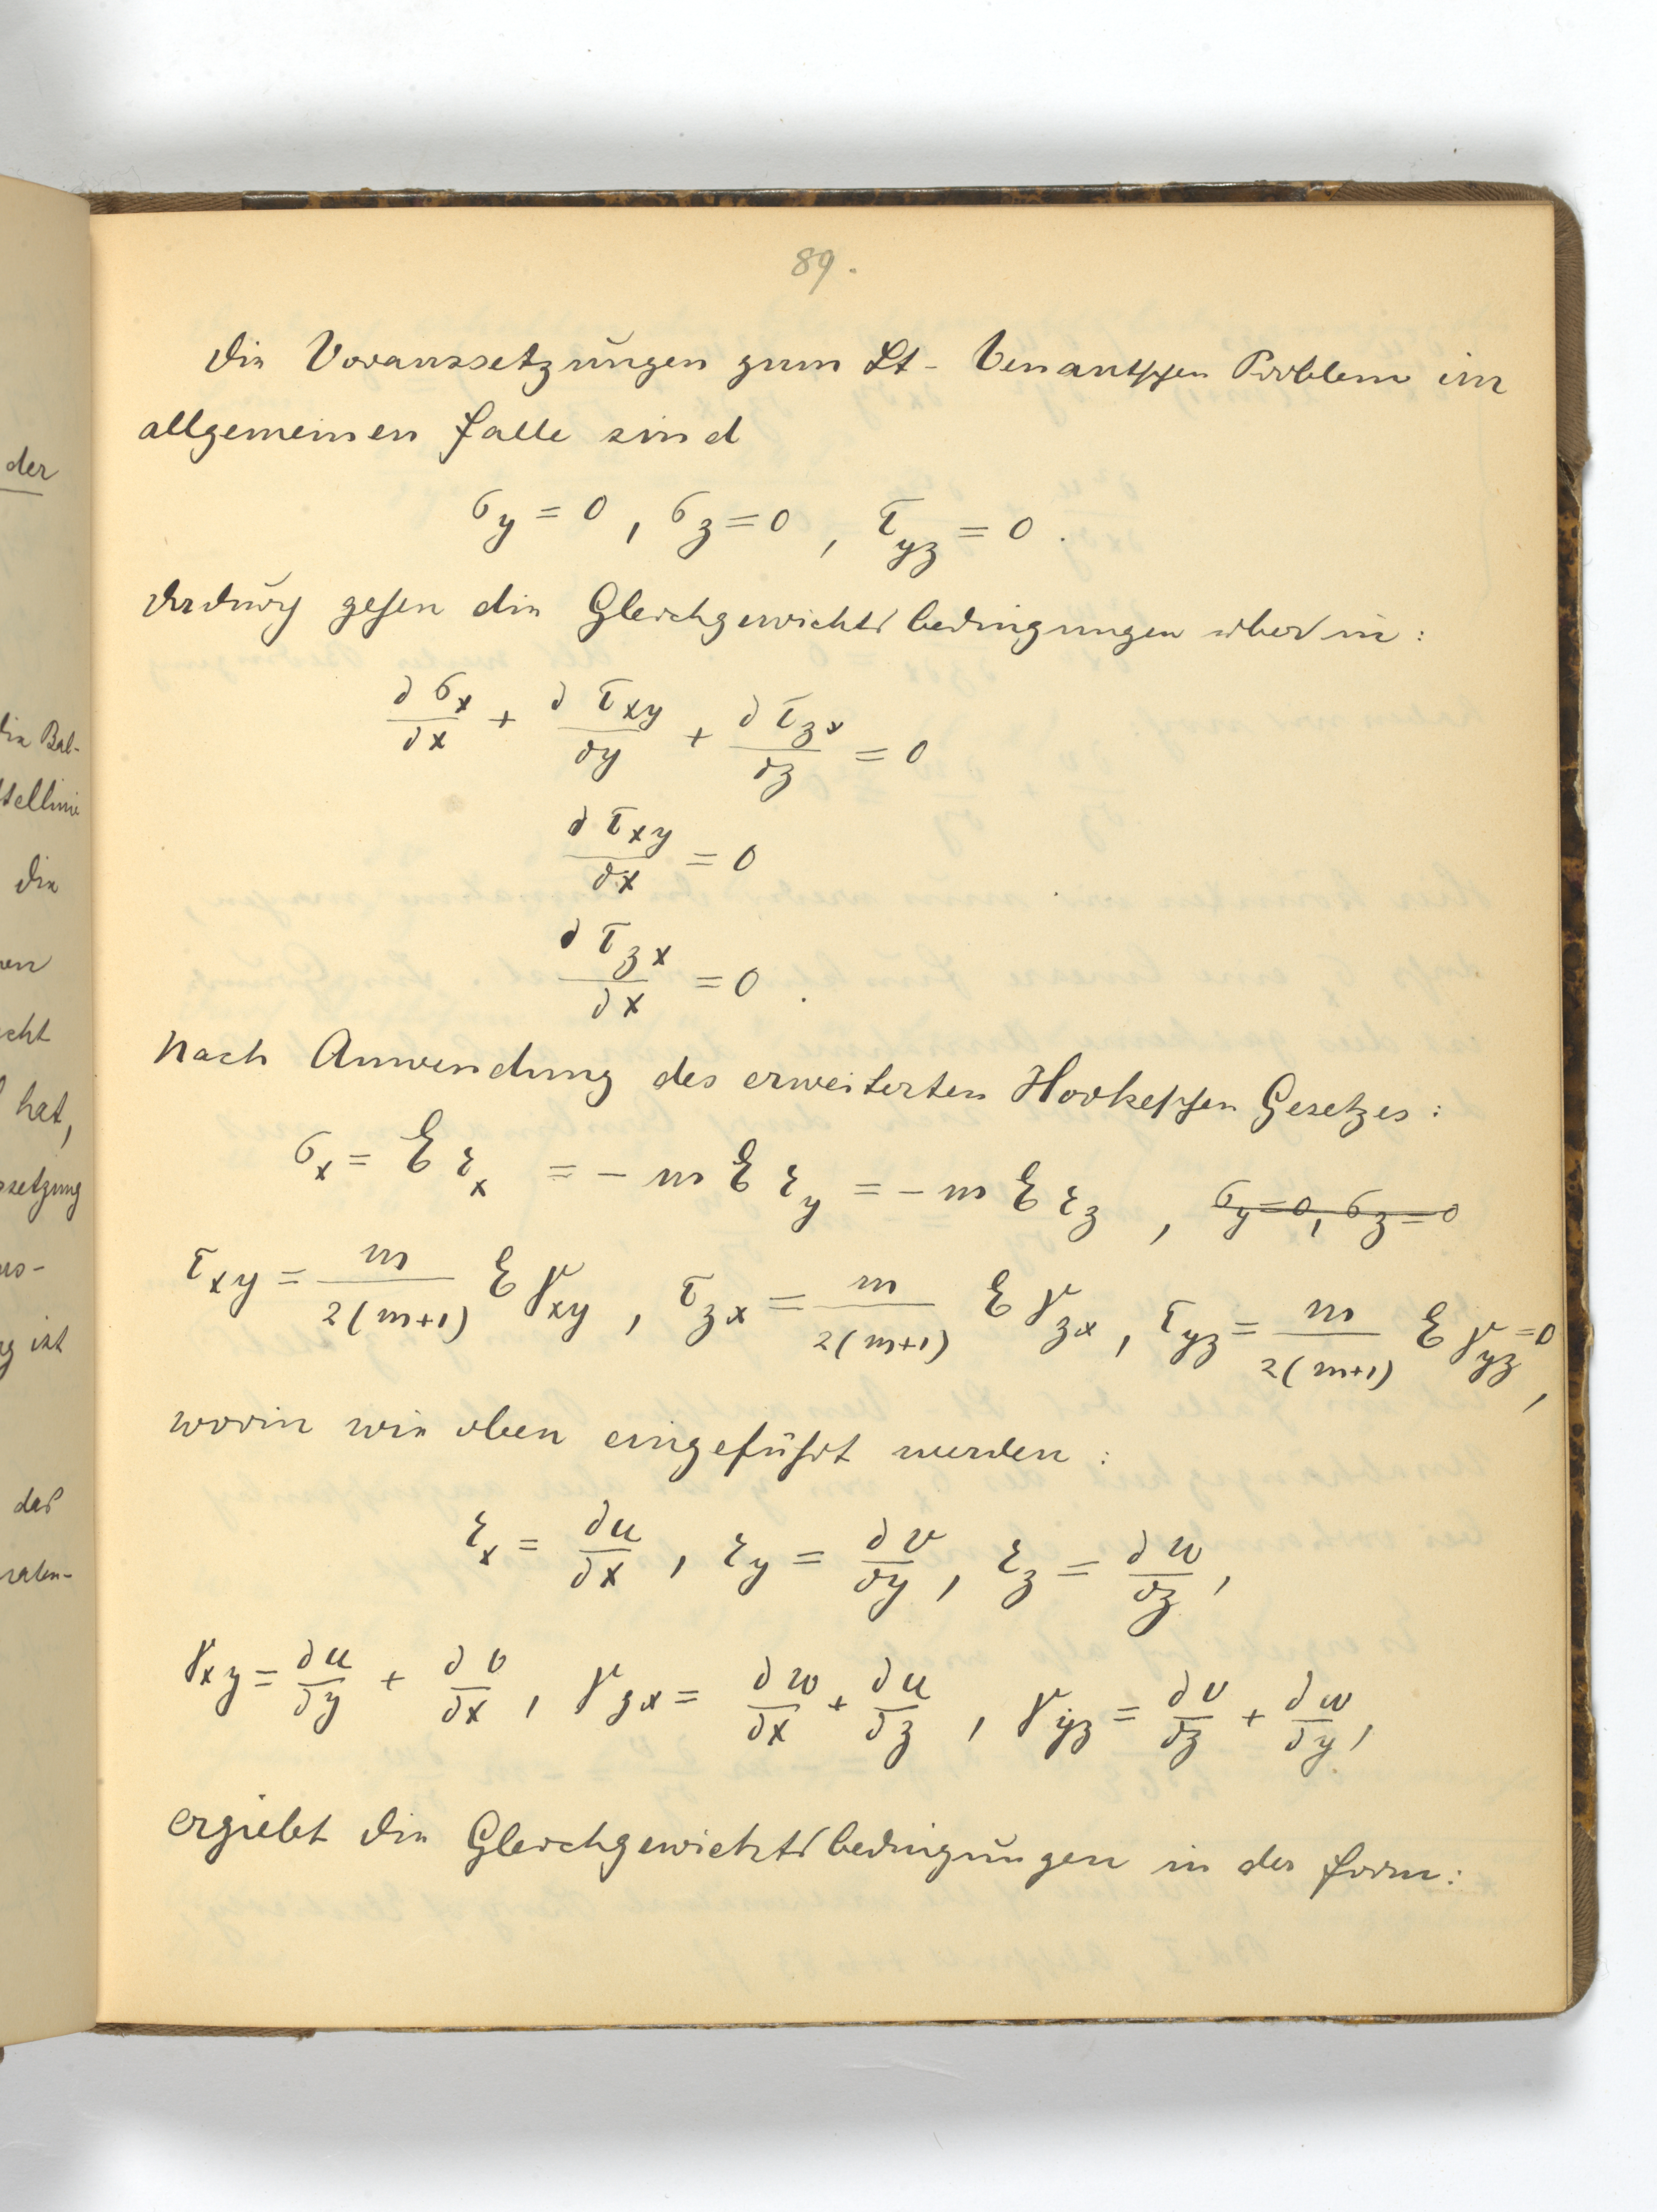 89.
Die Voraussetzungen zum St-Venantschen Problem im
allgemeinen Falle sind
σ_y = 0, σ_z = 0, τ_yz = 0.
Dadurch gehen die Gleichgewichtsbedingungen über in:
∂σ_x/∂x + ∂τ_xy/∂y + ∂τ_zx/∂z = 0
∂τ_xy/∂x = 0
∂τ_zx/∂x = 0.
Nach Anwendung des erweiterten Hookeschen Gesetzes:
σ_x = E ε_x = - m E ε_y = - m E ε_z, σ_y = 0, σ_z = 0
τ_xy = m/2(m+1) E γ_xy, τ_zx = m/2(m+1) E γ_zx, τ_yz = m/2(m+1) E γ_yz = 0,
worin wie oben eingeführt werden:
ε_x = ∂u/∂x, ε_y = ∂v/∂y, ε_z = ∂w/∂z,
γ_xy = ∂u/∂y + ∂v/∂x, γ_zx = ∂w/∂x + ∂u/∂z, γ_yz = ∂v/∂z + ∂w/∂y,
ergiebt die Gleichgewichtsbedingungen in der Form:
der
die Bal-
Die
hat,
ist
das